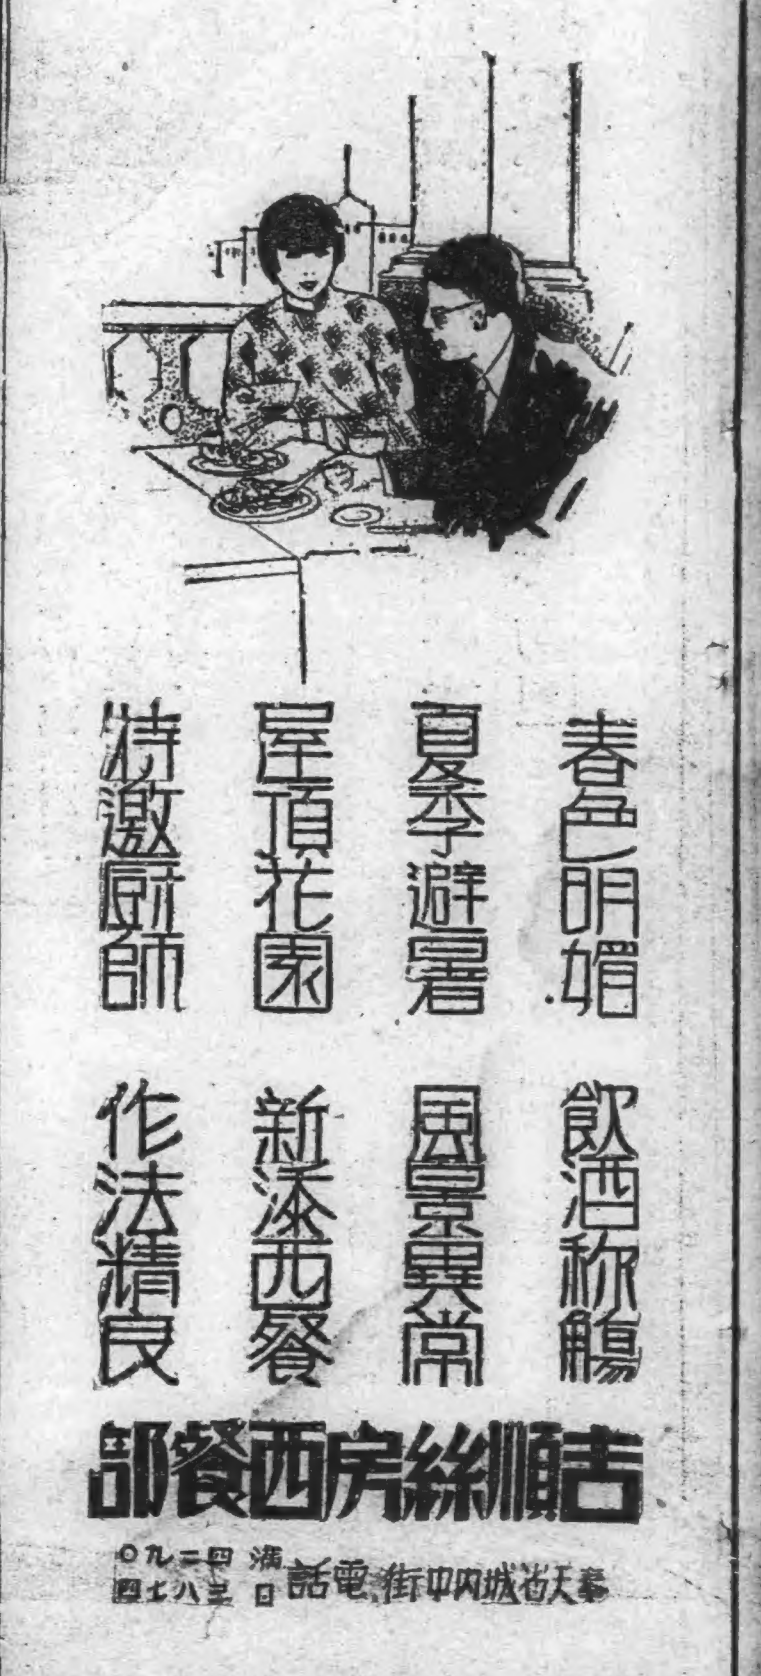 春色明媚
飲酒称觴
夏季避暑
風景異常
屋頂花園
新添西餐
特邀厨師
作法精良
吉順絲房西餐部
奉天省城内中街 電話
滿 四二九〇
日 三八七四